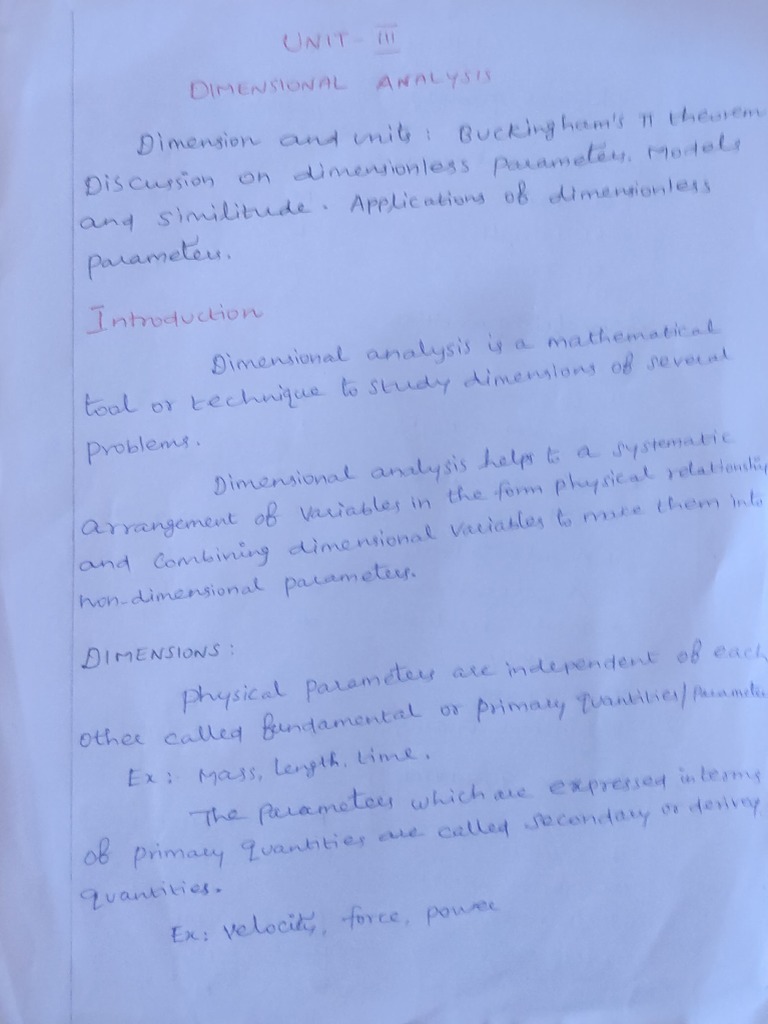 UNIT - III
DIMENSIONAL ANALYSIS
Dimension and units : Buckingham's π theorem
Discussion on dimensionless parameters. Models
and similitude. Applications of dimensionless
parameters.
Introduction
Dimensional analysis is a mathematical
tool or technique to study dimensions of several
problems.
Dimensional analysis helps to a systematic
arrangement of variables in the form physical relationship
and combining dimensional variables to make them into
non-dimensional parameters.
DIMENSIONS :
Physical parameters are independent of each
other called fundamental or primary quantities/parameter
Ex : Mass, length, time.
The parameters which are expressed interms
of primary quantities are called secondary or derived
quantities.
Ex : velocity, force, power